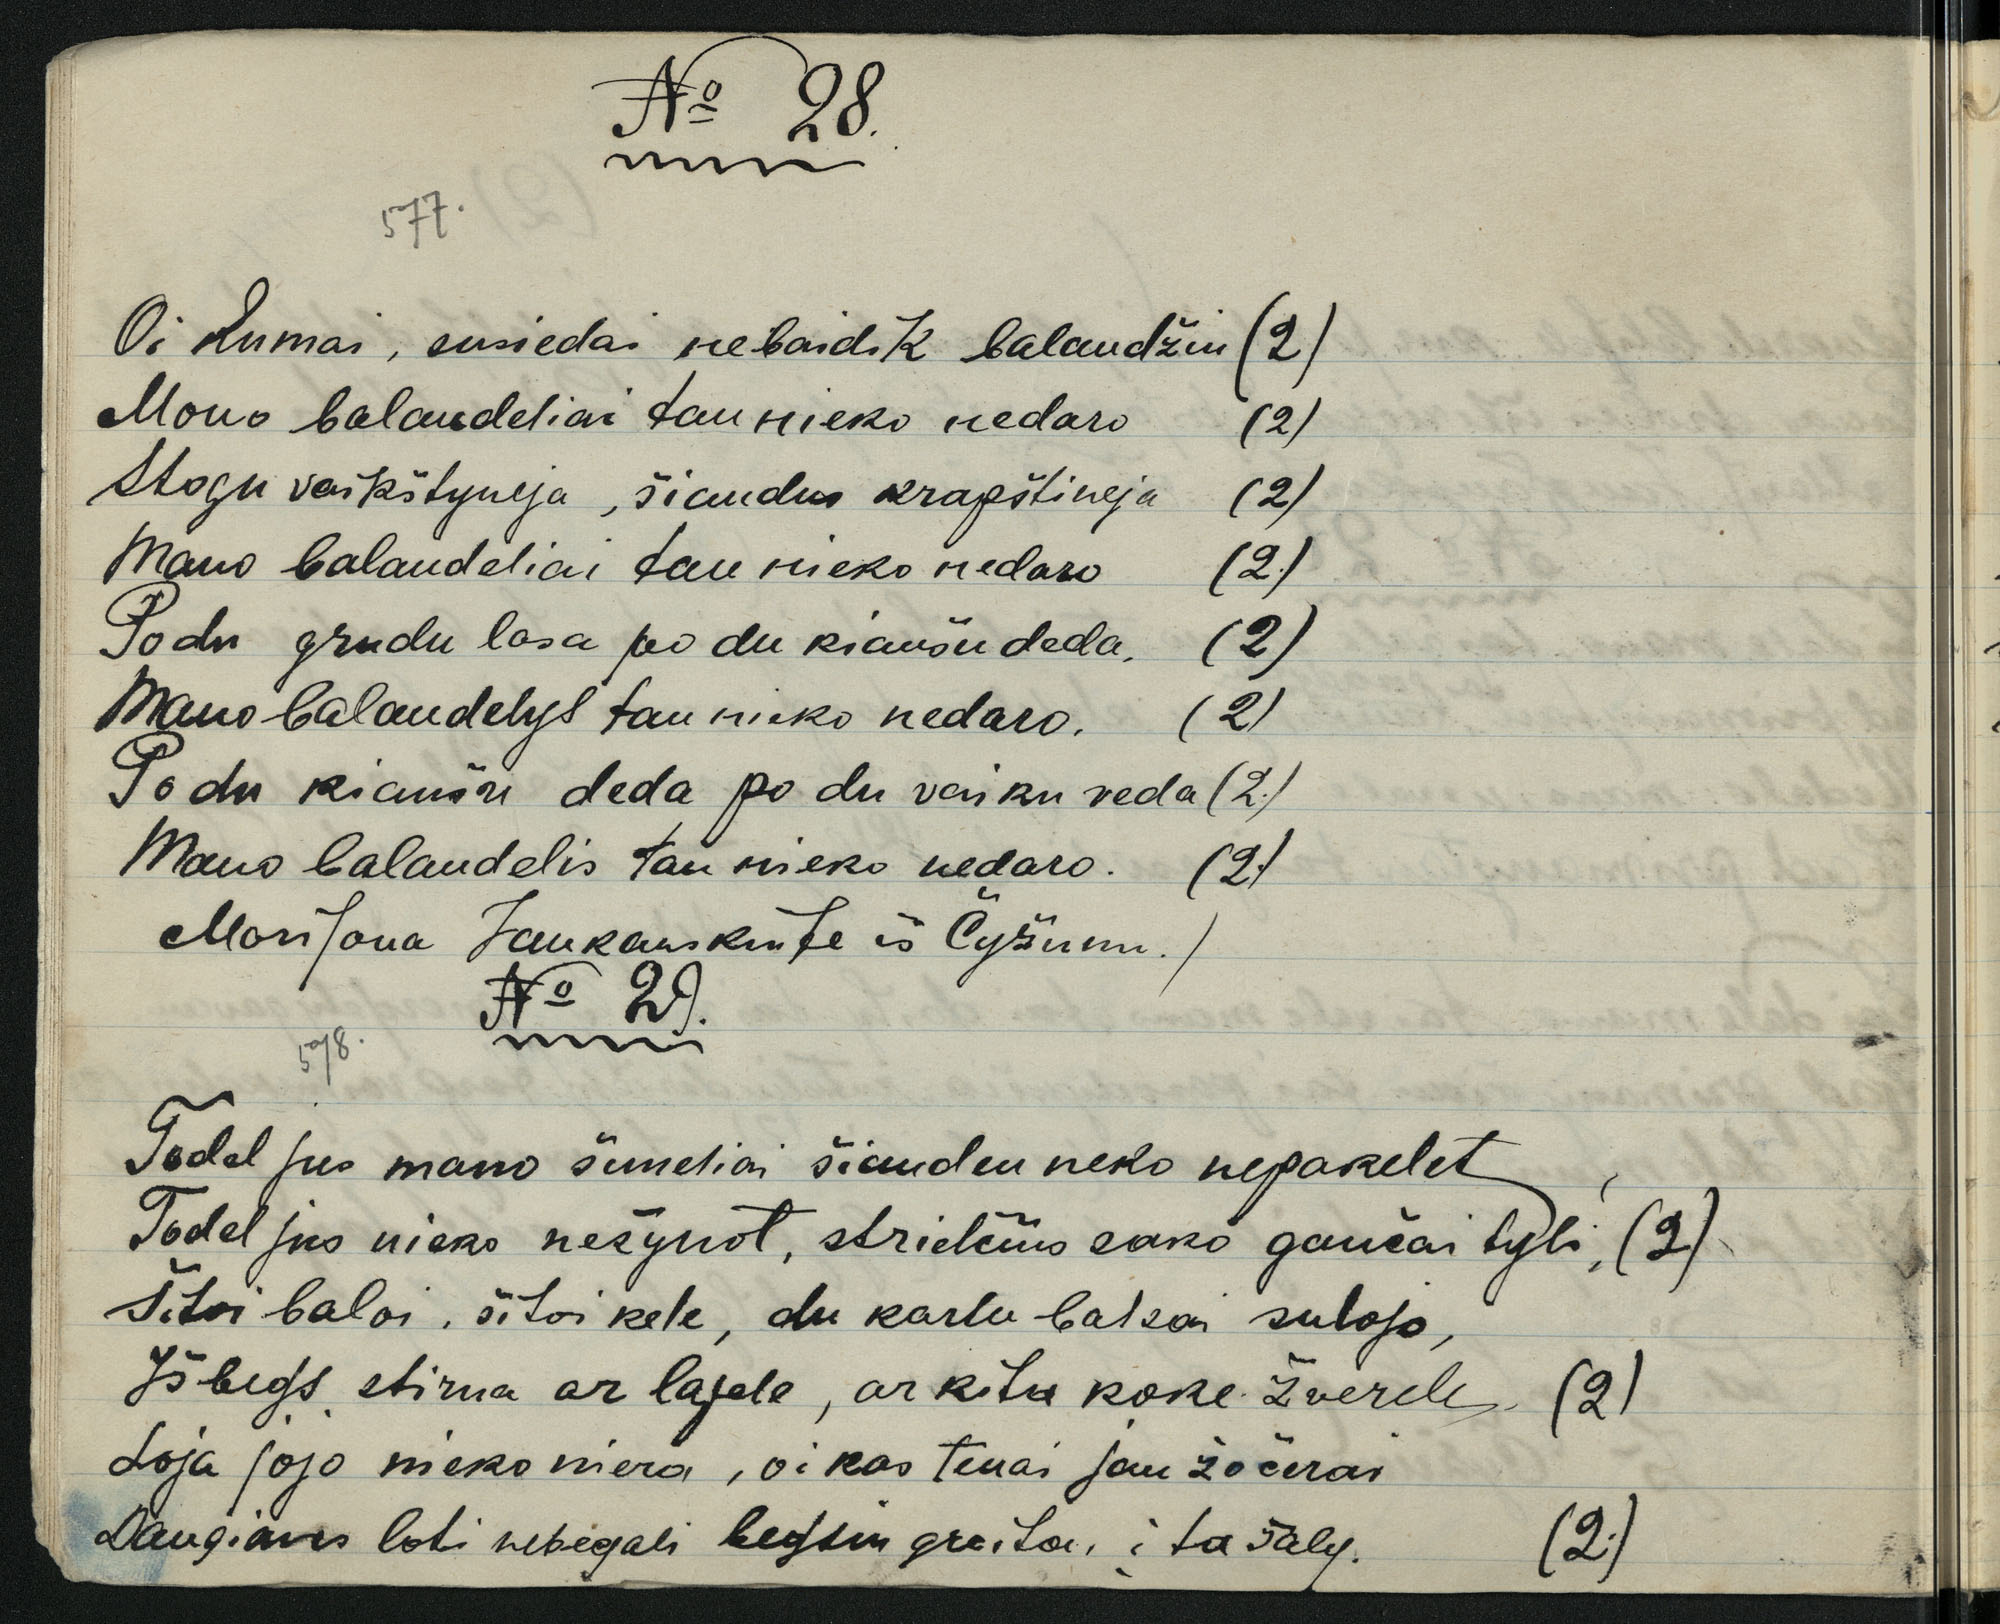 No 28.
577.
Oi Kumai, susiedai nebaidik balandžiu (2)
Mono balandeliai tau nieko nedaro (2)
Stogu vaikštyneja, šiaudus krapštineja (2)
Mano balandeliai tau nieko nedaro (2)
Po du grudu lasa po du kiaušu deda. (2)
Mano balandelys tau nieko nedaro. (2)
Po du kiaušu deda po du vaiku veda (2)
Mano balandelis tau nieko nedaro. (2)
Marijona Jankauskiute iš Čyžunu.)
No 29.
578.
Todel jus mano šuneliai šiauden neko nepakelet,
Todel jus nieko nežynot, strielčius sako gančai tyli, (2)
Šitoi baloi, šitoi kele, du kartu balsai sulojo,
Išbegs stirna ar lapele, ar kitu koke žverele (2)
Loja jojo nieko niera, oi kas tenai jau žočerai
Daugiaus loti nebegali begsiu greitai į ta šaly. (2)